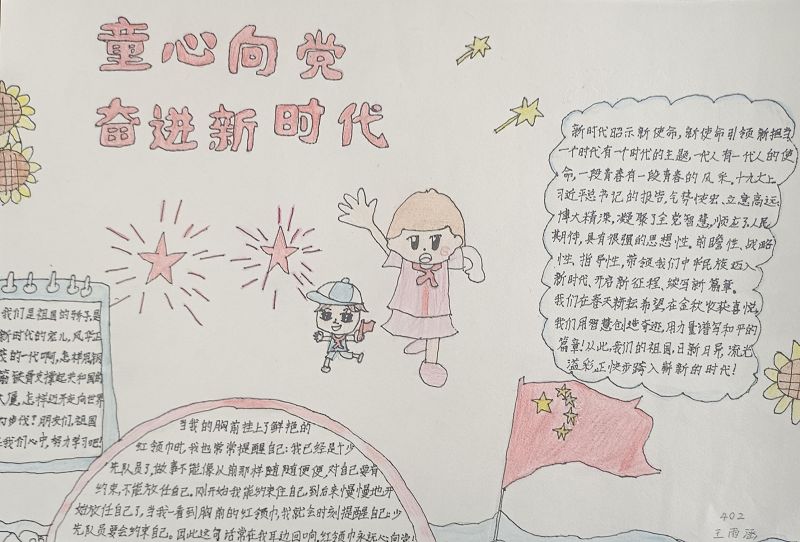 童心向党
奋进新时代
新时代昭示新使命，新使命引领新担当
一个时代有一个时代的主题，一代人有一代人的使
命，一段青春有一段青春的风采。十九大上
习近平总书记的报告，气势恢宏、立意高远
博大精深，凝聚了全党智慧，顺应了人民
期待，具有很强的思想性、前瞻性、战略
性、指导性，带领我们中华民族迈入
新时代、开启新征程，续写新篇章。
我们在春天耕耘希望，在金秋收获喜悦
我们用智慧创造奇迹，用力量谱写和平的
篇章！从此，我们的祖国，日新月异，流光
溢彩，正快步跨入崭新的时代！
我们是祖国的骄子，是
新时代的宠儿，风华正
茂的一代啊，怎样用钢
筋铁骨支撑起共和国的
大厦，怎样迈开走向世界
的步伐？朋友们，祖国
在我们心中，努力学习吧！
当我的胸前挂上了鲜艳的
红领巾时，我也常常提醒自己：我已经是个少
先队员了，做事不能像从前那样随随便便，对自己要有
约束，不能放任自己。刚开始我能约束住自己，到后来慢慢地开
始放任自己了，当我一看到胸前的红领巾，我就会时刻提醒自己：少
先队员要会约束自己。因此这句话常在我耳边回响，红领巾永远心向党！
402
王雨涵